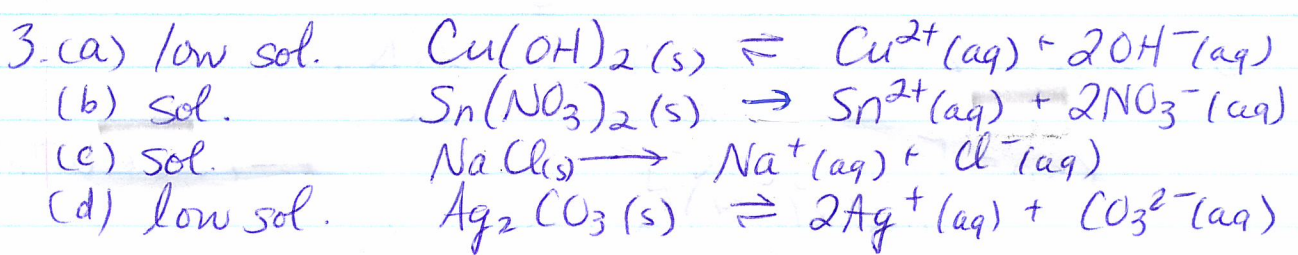 3.(a) low sol. Cu(OH)₂(s) ⇌ Cu²⁺(aq) + 2OH⁻(aq)
(b) sol. Sn(NO₃)₂(s) → Sn²⁺(aq) + 2NO₃⁻(aq)
(c) sol. NaCl(s) → Na⁺(aq) + Cl⁻(aq)
(d) low sol. Ag₂CO₃(s) ⇌ 2Ag⁺(aq) + CO₃²⁻(aq)